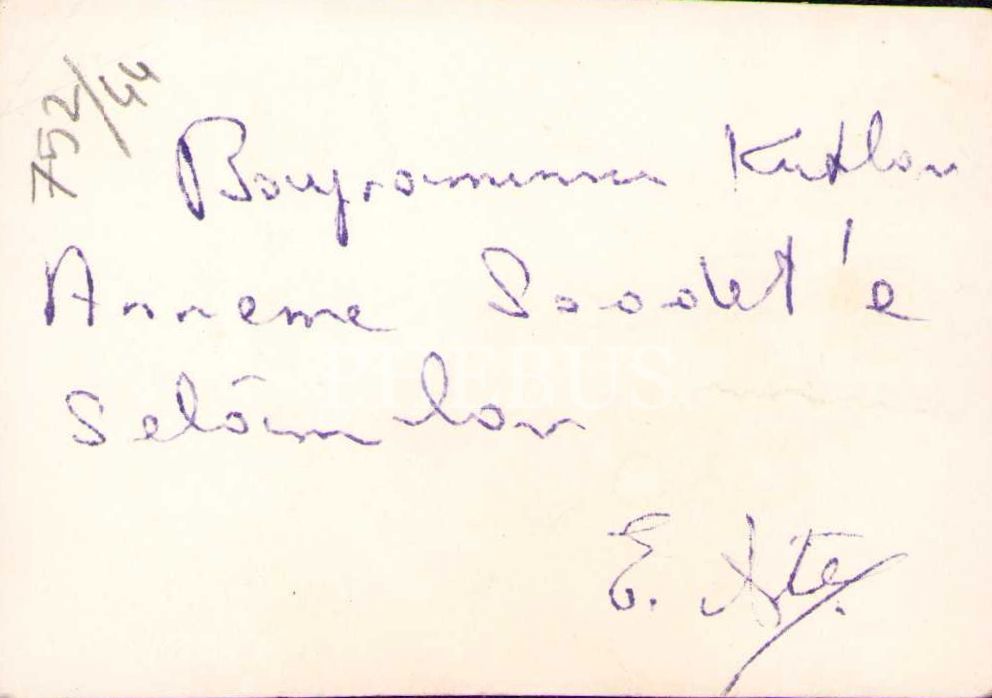 752/44
Bayramınızı Kutlar
Anneme Saadet'e
Selâmlar
PHEBUS.
E. Ate